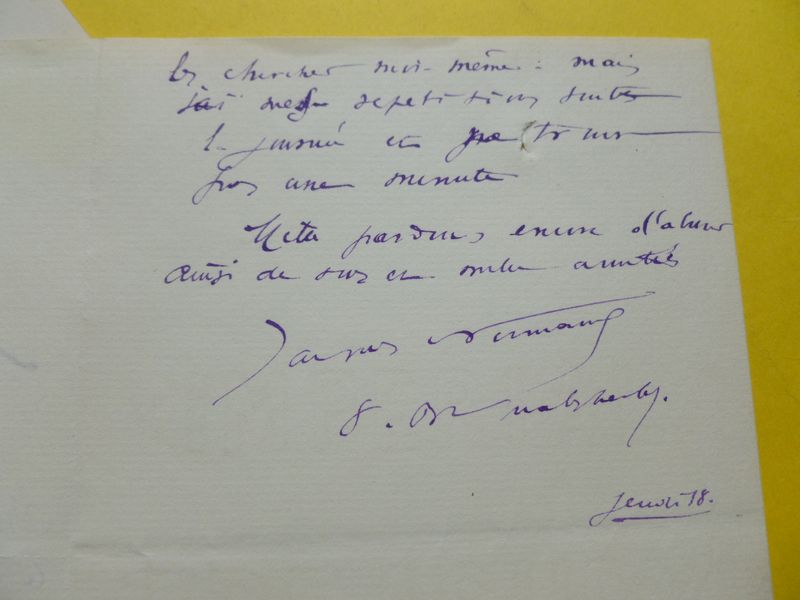 les chercher moi-même : mais
j'ai mes répétitions toute
la journée et ne trouve
pas une minute
Mille pardons encore d'abuser
ainsi de vous et mille amitiés
Jacques Normand
8. Bd Malesherbes.
Jeudi 18.